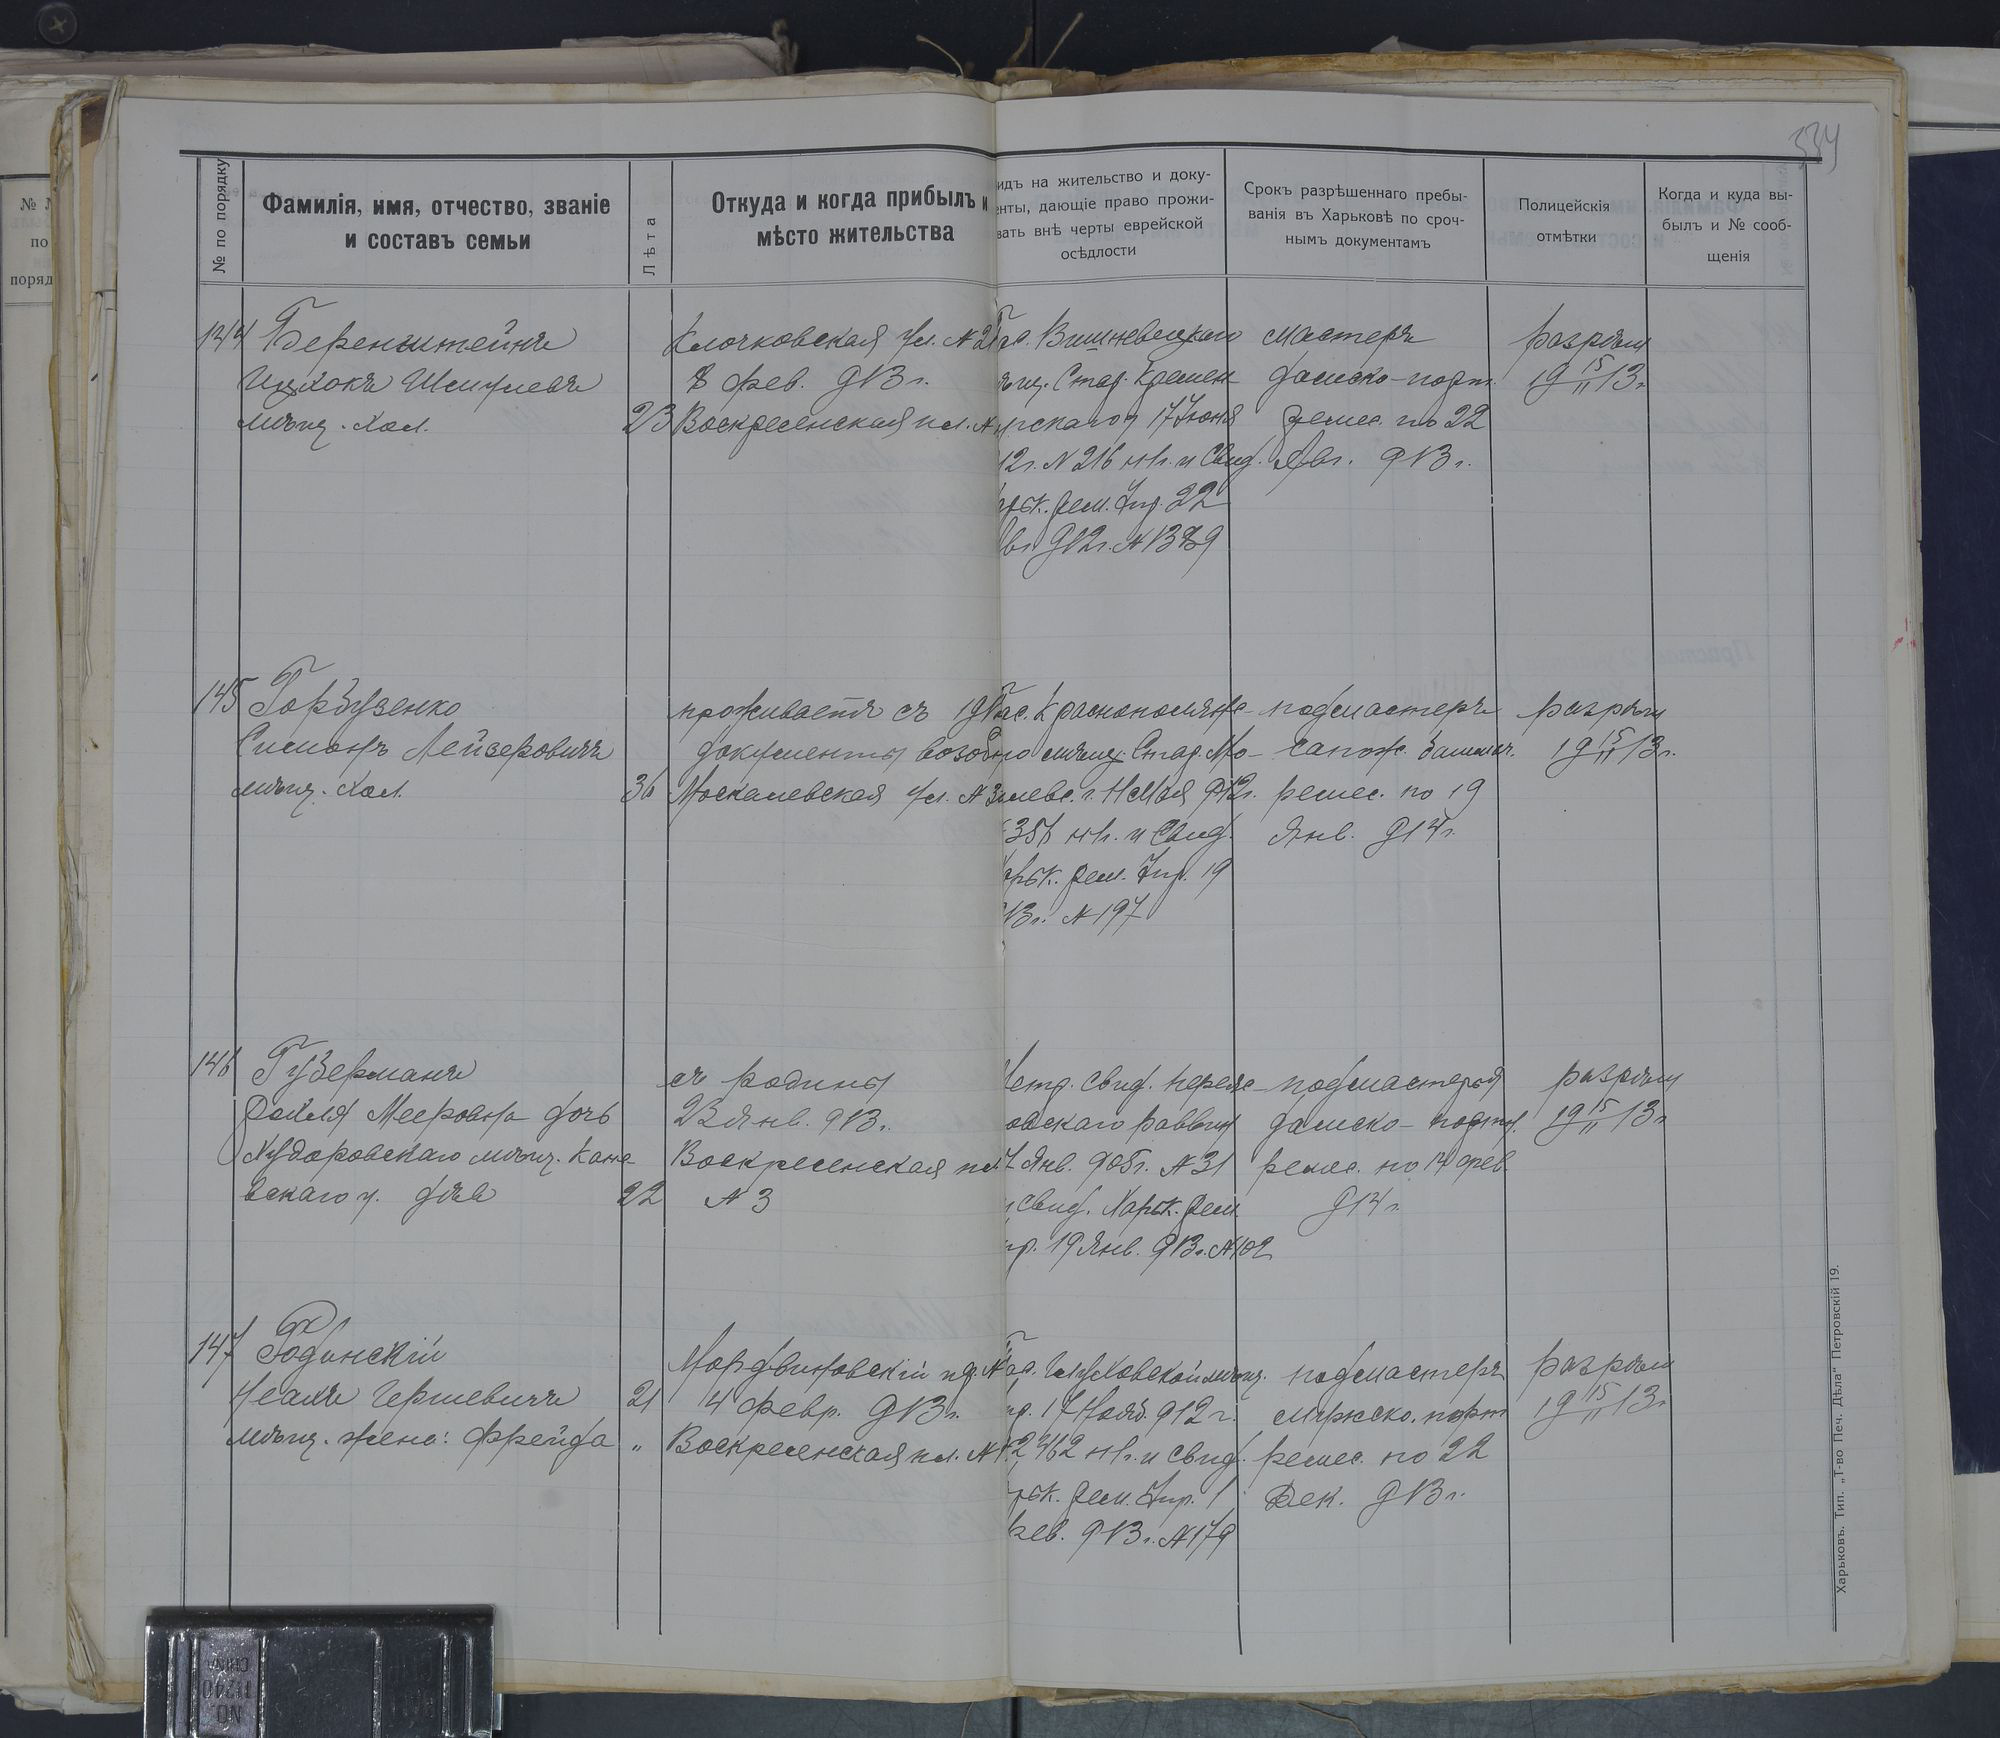 334
№ по порядку
Фамилія, имя, отчество, званіе
и составъ семьи
Лѣта
Откуда и когда прибылъ и
мѣсто жительства
идъ на жительство и доку-
енты, дающіе право прожи-
вать внѣ черты еврейской
осѣдлости
Срокъ разрѣшеннаго пребы-
ванія въ Харьковѣ по сроч-
нымъ документамъ
Полицейскія
отмѣтки
Когда и куда вы-
былъ и № сооб-
щенія
144
Беренштейнъ
Ицхокъ
мѣщ. хол.
23
Клочковская ул. №
8 фев. 913 г.
Воскресенская пл.
Вишневецкаго
мѣщ. Стар. Кремен
17 Іюня
12г. № 216 и Свид.
рьк. Рем. Упр. 22
вг. 912г. №
мастеръ
дамско-порт.
ремес. по 22
Авг. 913 г.
разрѣш
19 15/II 13г.
145
Горбузенко
Симонъ Лейзеровичъ
мѣщ. хол.
36
проживаетъ съ
документы
Москалевская ул. №
ас. Краснополянс
мѣщ. Стар. Мо-
Мая 912г.
356 и Свид.
арьк. Рем. Упр. 19
913г. № 197
подмастеръ
сапож. башмач.
ремес. по 19
Янв. 914г.
разрѣш
19 15/II 13г.
146
Губерманъ
Рахля Мееровна дочь
Ходоровскаго мѣщ. Кане
вскаго у. дѣв
22
съ родины
23 Янв. 913г.
Воскресенская пл.
№ 3
етр. свид. Переяс-
овскаго раввин
Янв. 905г. № 31
и Свид. Харьк. Рем.
пр. 19 Янв. 913г. № 102
подмастерья
дамско-портн.
ремес. по 14 фев
914г.
разрѣш
19 15/II 13г.
147
Родинскій
Чеахъ Гершевичъ
21
мѣщ. жена: Фрейда
"
Мордвиновскій пер. №
4 февр. 913г.
Воскресенская пл. №
ас. Глуховской мѣщ.
пр. 17 Нояб. 912г.
2462 и Свид.
рьк. Рем. Упр. 1
фев. 913г. № 179
подмастеръ
мужско. порт
ремес. по 22
Дек. 913г.
разрѣш
19 15/II 13г.
Харьковъ. Тип. „Т-во Печ. Дѣла" Петровскій 19.
№
по
поряд
NO.
11240
CHINA